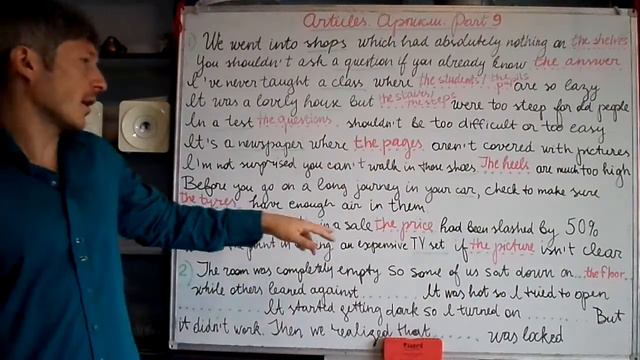 Articles. Артикли. Part 9
1) We went into shops which had absolutely nothing on the shelves
You shouldn't ask a question if you already know the answer
I've never taught a class where the students/the pupils are so lazy
It was a lovely house but the stairs/the steps were too steep for old people
In a test the questions shouldn't be too difficult or too easy
It's a newspaper where the pages aren't covered with pictures
I'm not surprised you can't walk in those shoes. The heels are much too high
Before you go on a long journey in your car, check to make sure
the tyres have enough air in them
in a sale the price had been slashed by 50%
an expensive TV set if the picture isn't clear
2) The room was completely empty so some of us sat down on... the floor...
while others leaned against ....... It was hot so I tried to open
....... It started getting dark so I turned on ....... But
it didn't work. Then we realized that ....... was locked